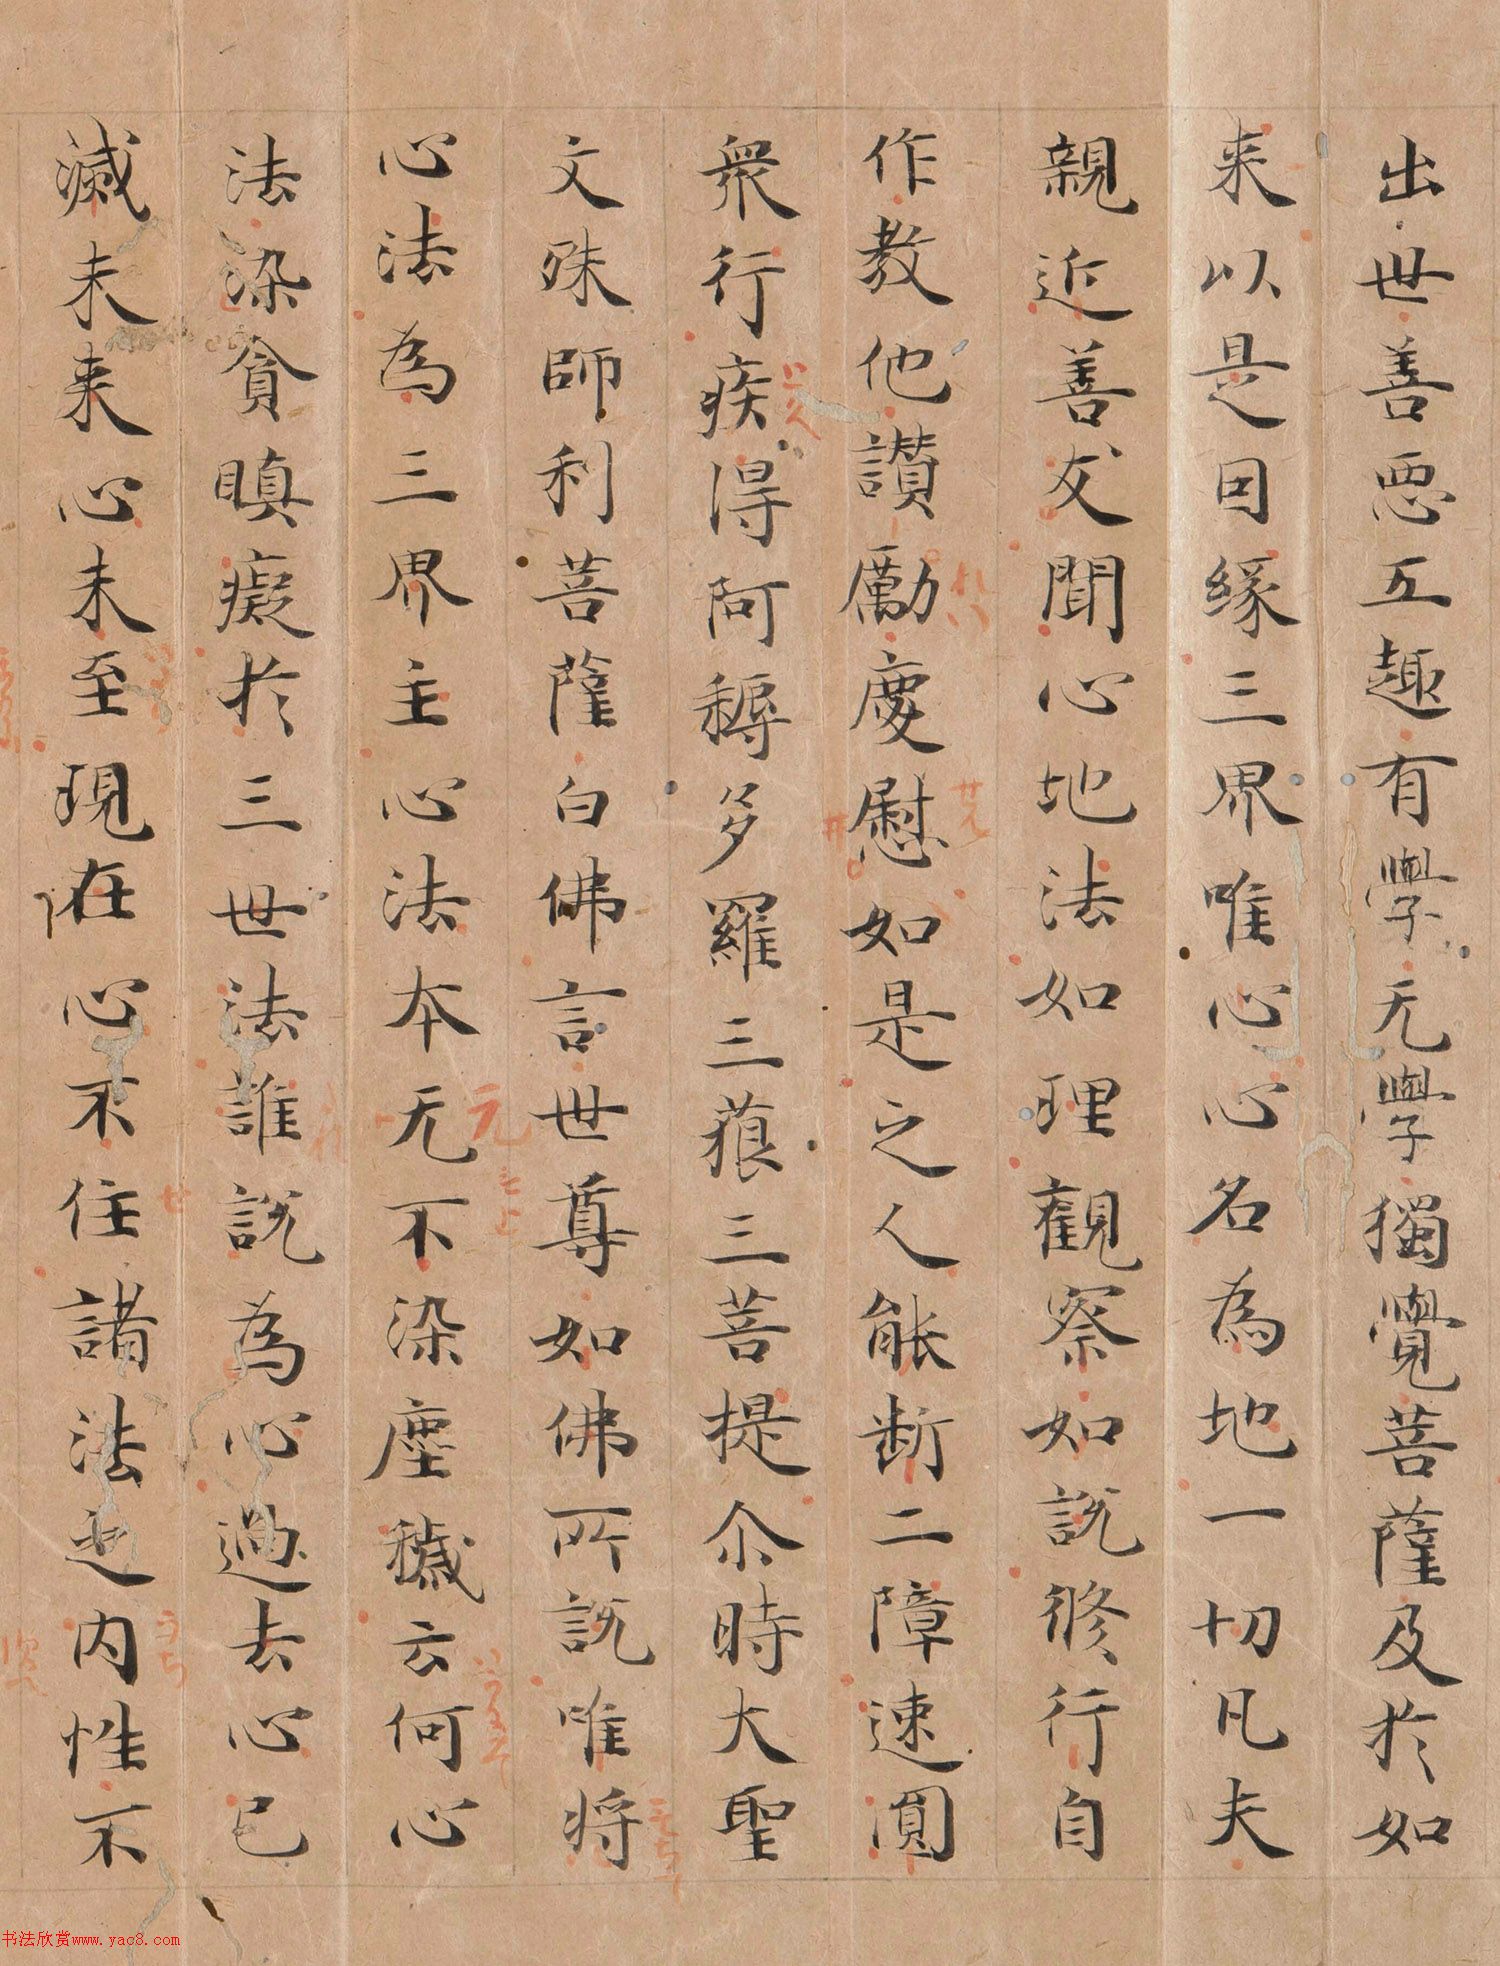 出世善惡五趣有學无學獨覺菩薩及於如
来以是因緣三界唯心心名為地一切凡夫
親近善友聞心地法如理觀察如說修行自
作教他讚勵慶慰如是之人能断二障速圓
衆行疾得阿耨多羅三藐三菩提尒時大聖
文殊師利菩薩白佛言世尊如佛所說唯将
心法為三界主心法本无不染塵穢云何心
法染貪瞋癡於三世法誰說為心過去心已
滅未来心未至現在心不住諸法之内性不
书法欣赏www.yac8.com